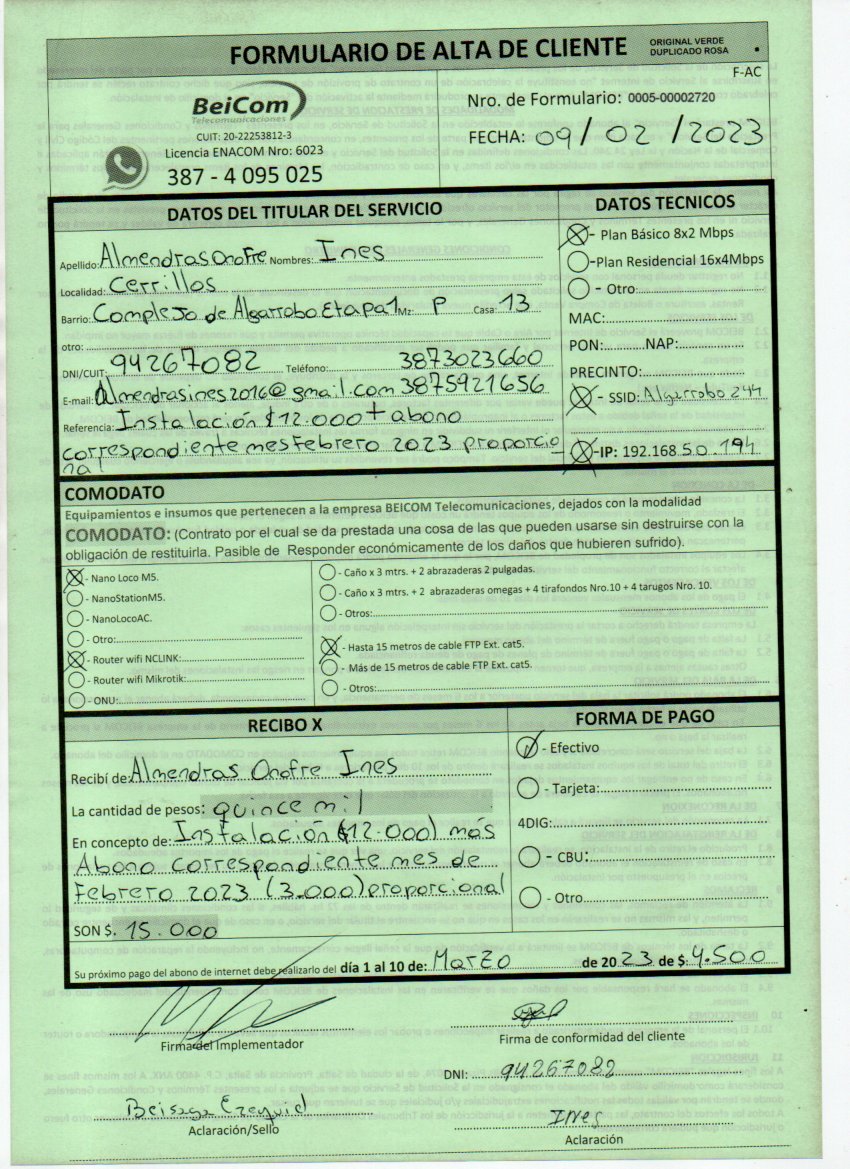 FORMULARIO DE ALTA DE CLIENTE
ORIGINAL VERDE
DUPLICADO ROSA
F-AC
BeiCom
Telecomunicaciones
CUIT: 20-22253812-3
Licencia ENACOM Nro: 6023
387 - 4 095 025
Nro. de Formulario: 0005-00002720
FECHA: 09 / 02 / 2023
DATOS DEL TITULAR DEL SERVICIO
Apellido: Almendras Onofre Nombres: Ines
Localidad: Cerrillos
Barrio: Complejo de Algarrobo Etapa 1 Mz: P Casa: 13
otro:
DNI/CUIT: 94267082 Teléfono: 3873023660
E-mail: Almendrasines2016@gmail.com 3875921656
Referencia: Instalación $12.000 + abono
correspondiente mes Febrero 2023 proporcio
nal
DATOS TECNICOS
- Plan Básico 8x2 Mbps
- Plan Residencial 16x4Mbps
- Otro:
MAC:
PON: NAP:
PRECINTO:
- SSID: Algarrobo 244
-IP: 192.168.50.194
COMODATO
Equipamientos e insumos que pertenecen a la empresa BEICOM Telecomunicaciones, dejados con la modalidad
COMODATO: (Contrato por el cual se da prestada una cosa de las que pueden usarse sin destruirse con la
obligación de restituirla. Pasible de Responder económicamente de los daños que hubieren sufrido).
- Nano Loco M5.
- NanoStationM5.
- NanoLocoAC.
- Otro:
- Router wifi NCLINK:
- Router wifi Mikrotik:
- ONU:
- Caño x 3 mtrs. + 2 abrazaderas 2 pulgadas.
- Caño x 3 mtrs. + 2 abrazaderas omegas + 4 tirafondos Nro.10 + 4 tarugos Nro. 10.
- Otros:
- Hasta 15 metros de cable FTP Ext. cat5.
- Más de 15 metros de cable FTP Ext. cat5.
- Otros:
RECIBO X
Recibí de: Almendras Onofre Ines
La cantidad de pesos: quince mil
En concepto de: Instalación ($12.000) más
Abono correspondiente mes de
Febrero 2023 (3.000) proporcional
SON $. 15.000
FORMA DE PAGO
- Efectivo
- Tarjeta:
4DIG:
- CBU:
- Otro
Su próximo pago del abono de internet debe realizarlo del día 1 al 10 de: Marzo de 2023 de $ 4.500
Firma del Implementador
Firma de conformidad del cliente
DNI: 94267082
Beisaga Ezequiel
Aclaración/Sello
Ines
Aclaración